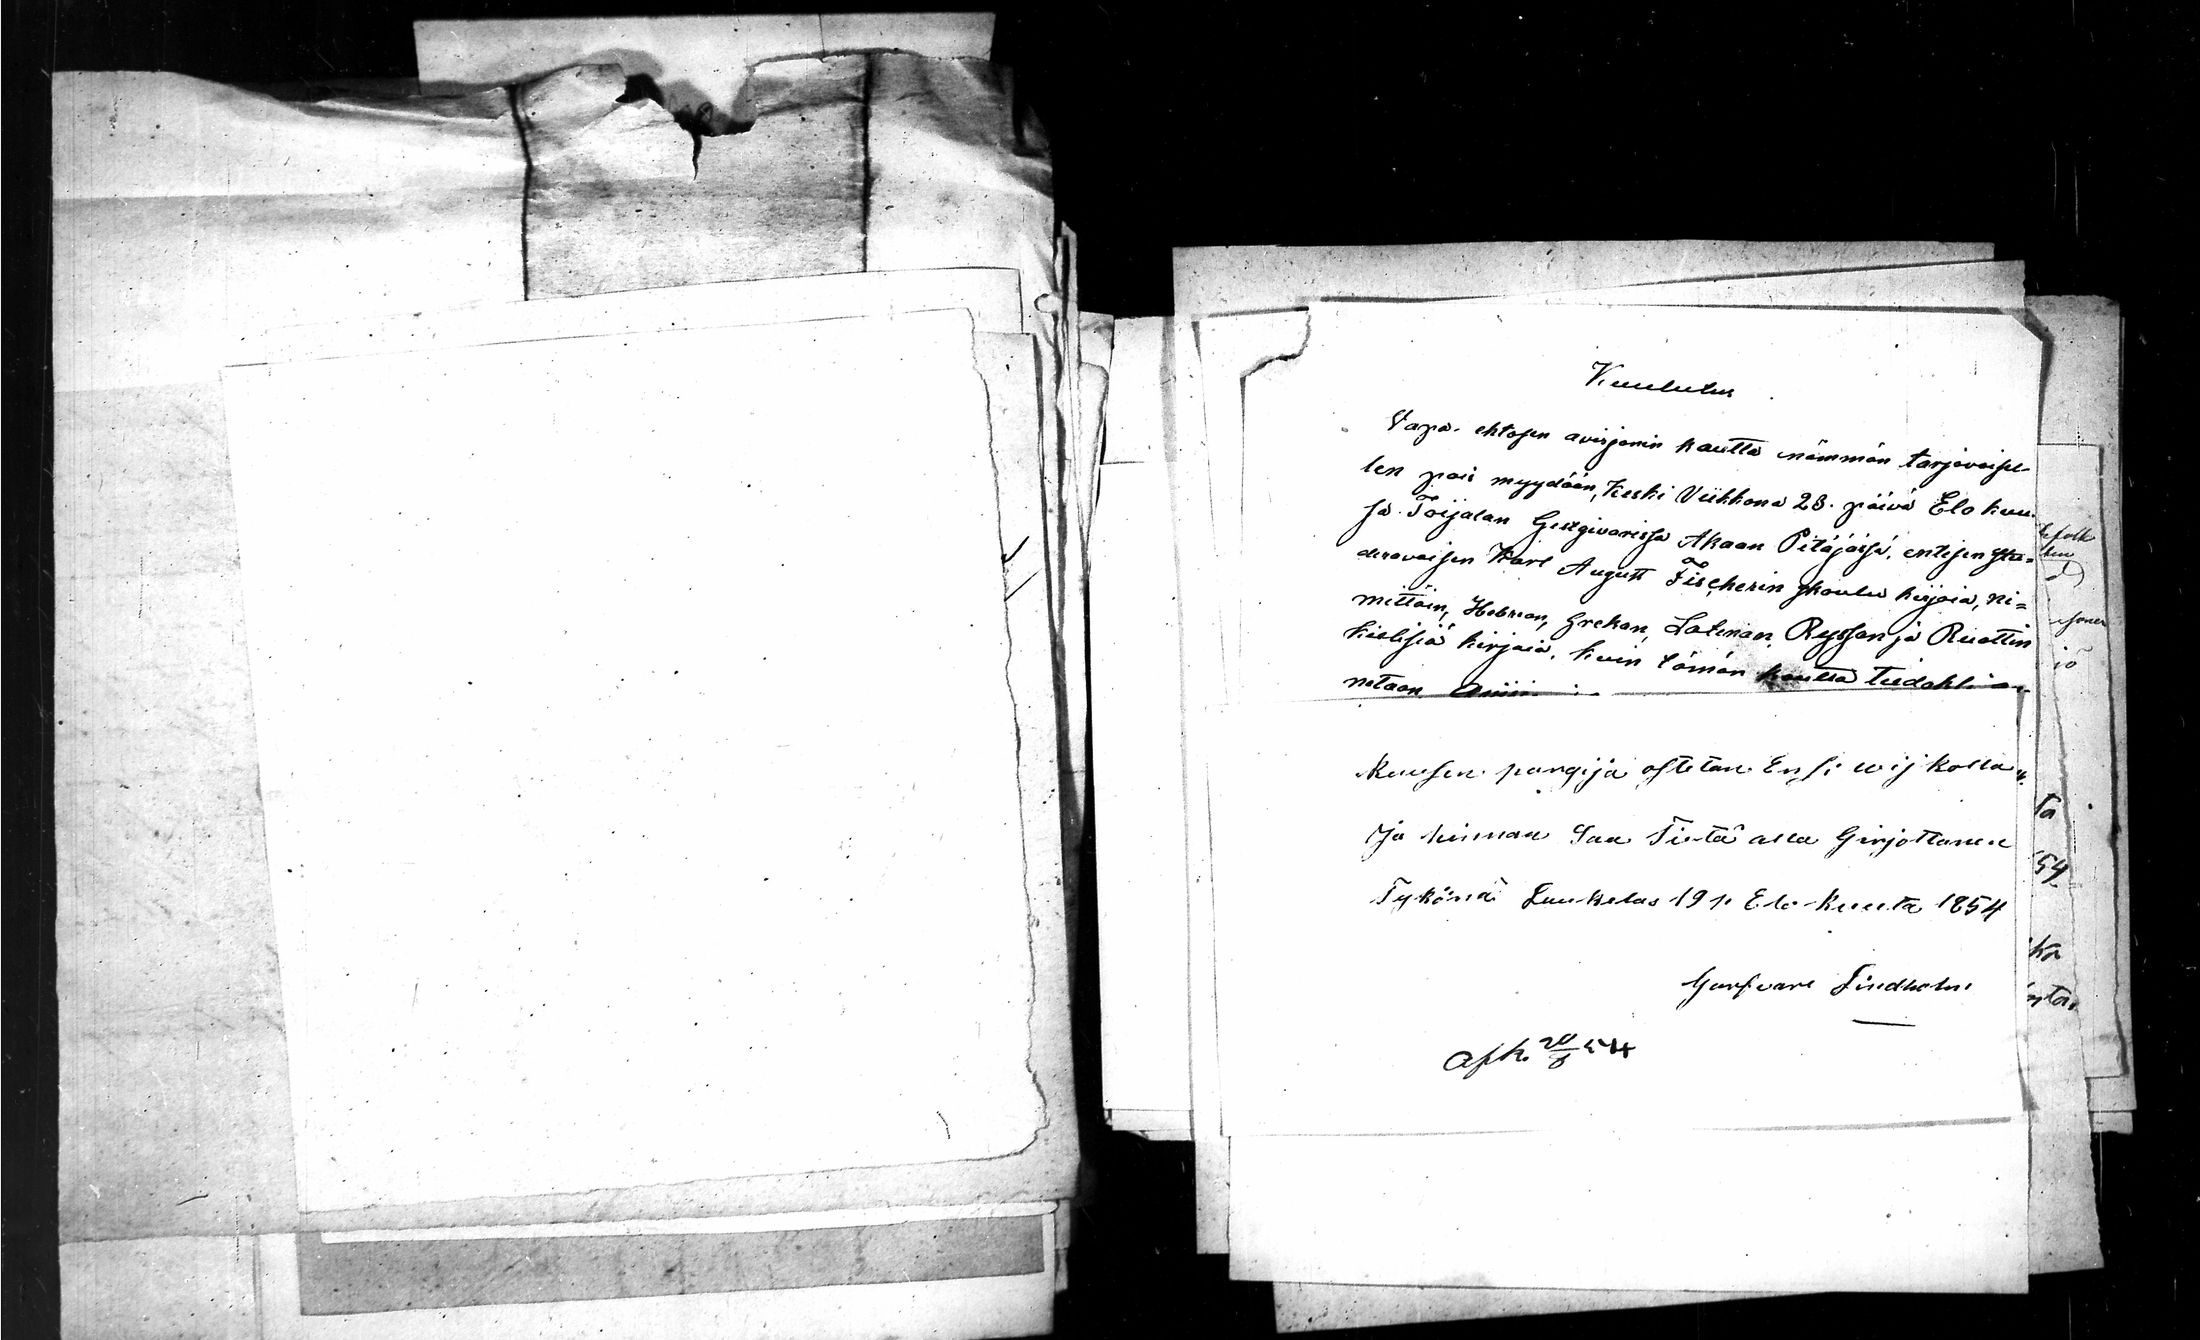 Kuulutus
Vapa-ehtosen avisjonin kautta nämmän tarjovaisel-
len pois myydään, Keski Viikkona 23. päivä Elo kuu-
sa Toijalan Gestgivarissa Akaan Pitäjässä, entisen Stu-
deravaisen Karl August Fischerin skoulu kirjoia, ni=
mittäin, Hebrean, Grekan, Latinan, Ryssan ja Ruottin
kielisiä kirjoia, kuin tämän kautta tiedokli an-
netaan
Kuusen pargija ostetan Ensi wij kolla
ja hinnan Saa Tietä alla Girjottanen
Tykönä Luukelas 19 p. Elo-kuuta 1854
Garfvare Lindholm
Afk. 20/8 54
ta
54
ka